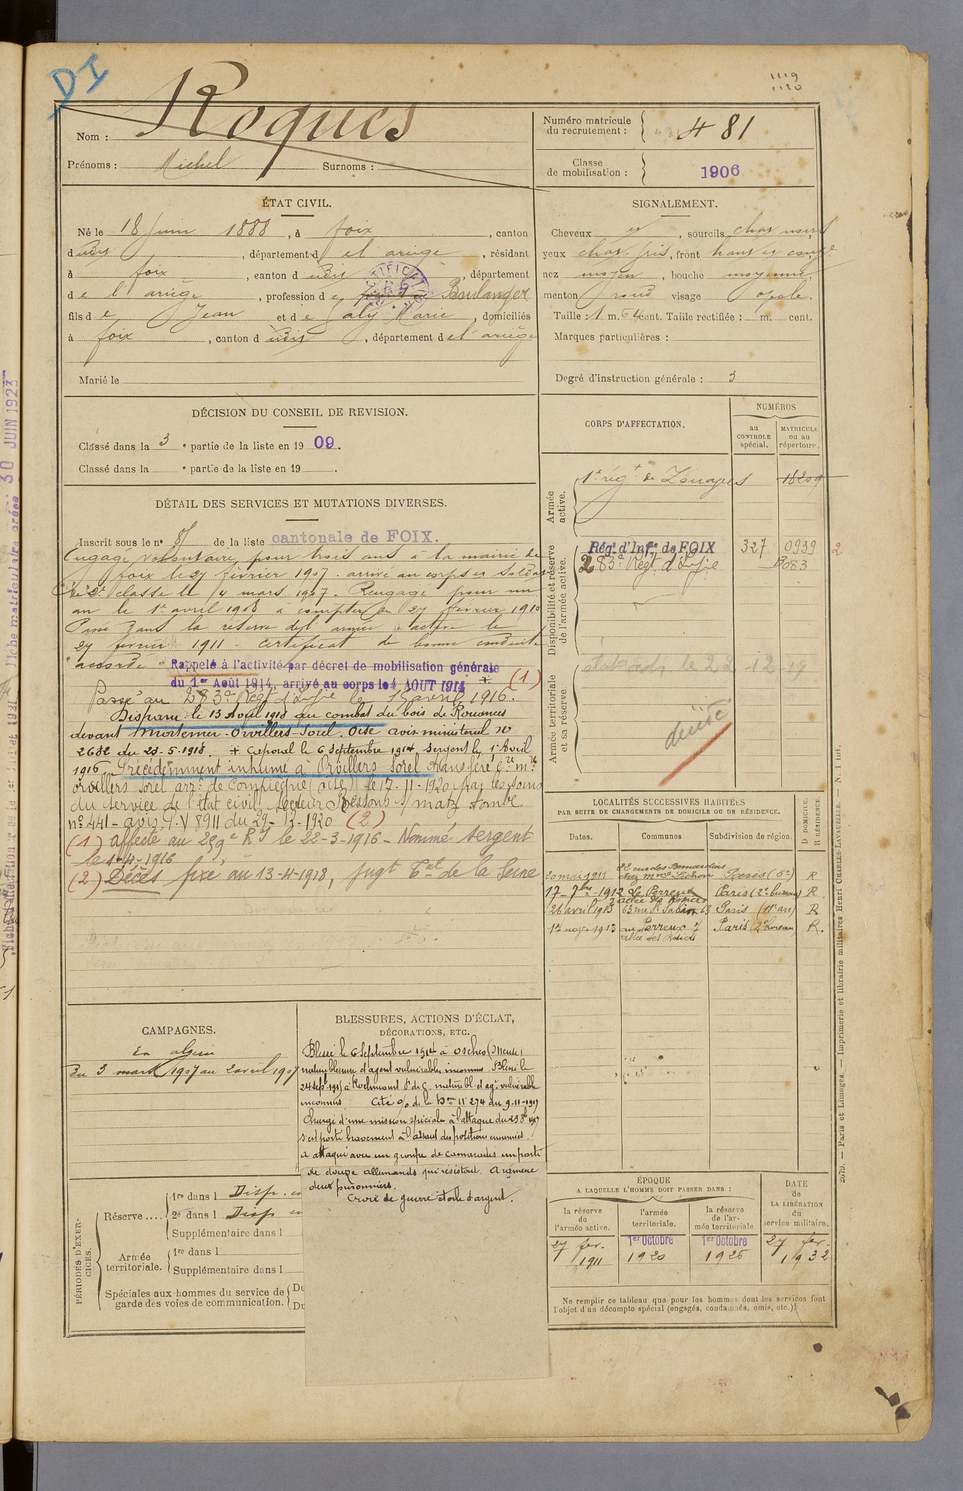 DI
1119
1120
Nom : Roques
Prénoms : Michel Surnoms :
Numéro matricule
du recrutement : 481
Classe
de mobilisation : 1906
ÉTAT CIVIL.
Né le 18 Juin 1888, à foix, canton
dudit, département d el ariège, résidant
à foix, canton d udit, département
d e l ariège, profession d e Boulanger
fils d e Jean et d e Galy Marie, domiciliés
à foix, canton d udit, département d el ariège
Marié le
SIGNALEMENT.
Cheveux er, sourcils chat
yeux chat. gris, front haut
nez moyen, bouche moyenne
menton rond visage ovale.
Taille : 1 m. 64 cent. Taille rectifiée : m. cent.
Marques particulières :
Degré d'instruction générale : 3
DÉCISION DU CONSEIL DE REVISION.
Classé dans la 3 e partie de la liste en 19 09.
Classé dans la e partie de la liste en 19 .
DÉTAIL DES SERVICES ET MUTATIONS DIVERSES.
Inscrit sous le n° 81 de la liste cantonale de FOIX.
Engagé volontaire pour trois ans à la mairie de
foix le 27 février 1907. arrivé au corps et soldat
de 2e classe le 4 mars 1907. Rengagé pour un
an le 1er avril 1908 à compter du 27 février 1910
Passé dans la réserve del armée active le
27 février 1911. certificat de bonne conduite
"accordé" Rappelé à l'activité par décret de mobilisation générale
du 1er Août 1914, arrivé au corps le 4 AOUT 1914 + (1)
Passé au 283e Régt d'Infie le avril 1916.
Disparu le 13 Avril 1918 au combat du bois de Rouances
devant Mortemer-Orvillers-Sorel. Oise avis ministériel N°
2682 du 23-5-1918. + Caporal le 6 Septembre 1914, Sergent le 1er Avril
1916 Précédemment inhumé à Orvillers Sorel transféré
orvillers Sorel arrt de Compiègne (oise) le 17-11-1920 par les soins
du service de l'état civil, secteur Ressons s/ matz tombe
n° 441 - avis 8911 du 29-12-1920 (2)
(1) affecté au 259e RI le 22-3-1916 - Nommé sergent
le 1-4-1916
(2) Décès fixé au 13-4-1918, jugt Tal de la Seine
CORPS D'AFFECTATION.
NUMÉROS
au
CONTROLE
spécial.
MATRICULE
ou au
répertoire.
Armée
active.
1er régt de Zouaves 16209
Disponibilité et réserve
de l'armée active.
Régt d'Infie de FOIX 327 0939 2
283e Régt d'Infie 8083
Armée territoriale
et sa réserve.
le 22-12-19
LOCALITÉS SUCCESSIVES HABITÉES
PAR SUITE DE CHANGEMENTS DE DOMICILE OU DE RÉSIDENCE.
Dates. Communes Subdivision de région. D DOMICILE. R RÉSIDENCE.
20 mai 1911 Paris R
17-7bre-1912 Le Perreux Paris (2e bureau) R
allée des Rosiers
26 avril 1913 63 rue St Sabin Paris (11e arr) R
12 nov. 1913 au Perreux 2 Paris (2e bureau) R.
allée des Rosiers
CAMPAGNES.
En algérie
Du 3 mars 1907 au 2 avril 1907
BLESSURES, ACTIONS D'ÉCLAT,
DÉCORATIONS, ETC.
Blessé le 6 Septembre 1914 à Osches (Meuse)
nature blessure d'agent vulnérable inconnus Blessé le
24 Sept. 1915 à Rochincourt P. de C. nature bl. d'agt vulnérable
inconnus Cité o/ de le Don N° 274 du 9-11-1917
Chargé d'une mission spéciale à l'attaque du 23 8bre 1917
s'est porté bravement à l'assaut des positions ennemies.
a attaqué avec un groupe de camarades un parti
de douze allemands qui résistait. A ramené
deux prisonniers.
Croix de guerre étoile d'argent.
PÉRIODES D'EXERCICES.
Réserve .... 1re dans l Disp. en
2e dans l Disp en
Supplémentaire dans l
Armée
territoriale. 1re dans l
Supplémentaire dans l
Spéciales aux hommes du service de
garde des voies de communication. Du
Du
ÉPOQUE
A LAQUELLE L'HOMME DOIT PASSER DANS :
la réserve
de
l'armée active.
l'armée
territoriale.
la réserve
de l'ar-
mée territoriale
DATE
de
LA LIBÉRATION
du
service militaire.
27 fer. 1911
1er Octobre 1920
1er Octobre 1926
27 fer. 1932
Ne remplir ce tableau que pour les hommes dont les services font
l'objet d'un décompte spécial (engagés, condamnés, omis, etc.)
2079. — Paris et Limoges. — Imprimerie et librairie militaires Henri CHARLES-LAVAUZELLE.
Fiche matriculaire créée 30 JUIN 1923